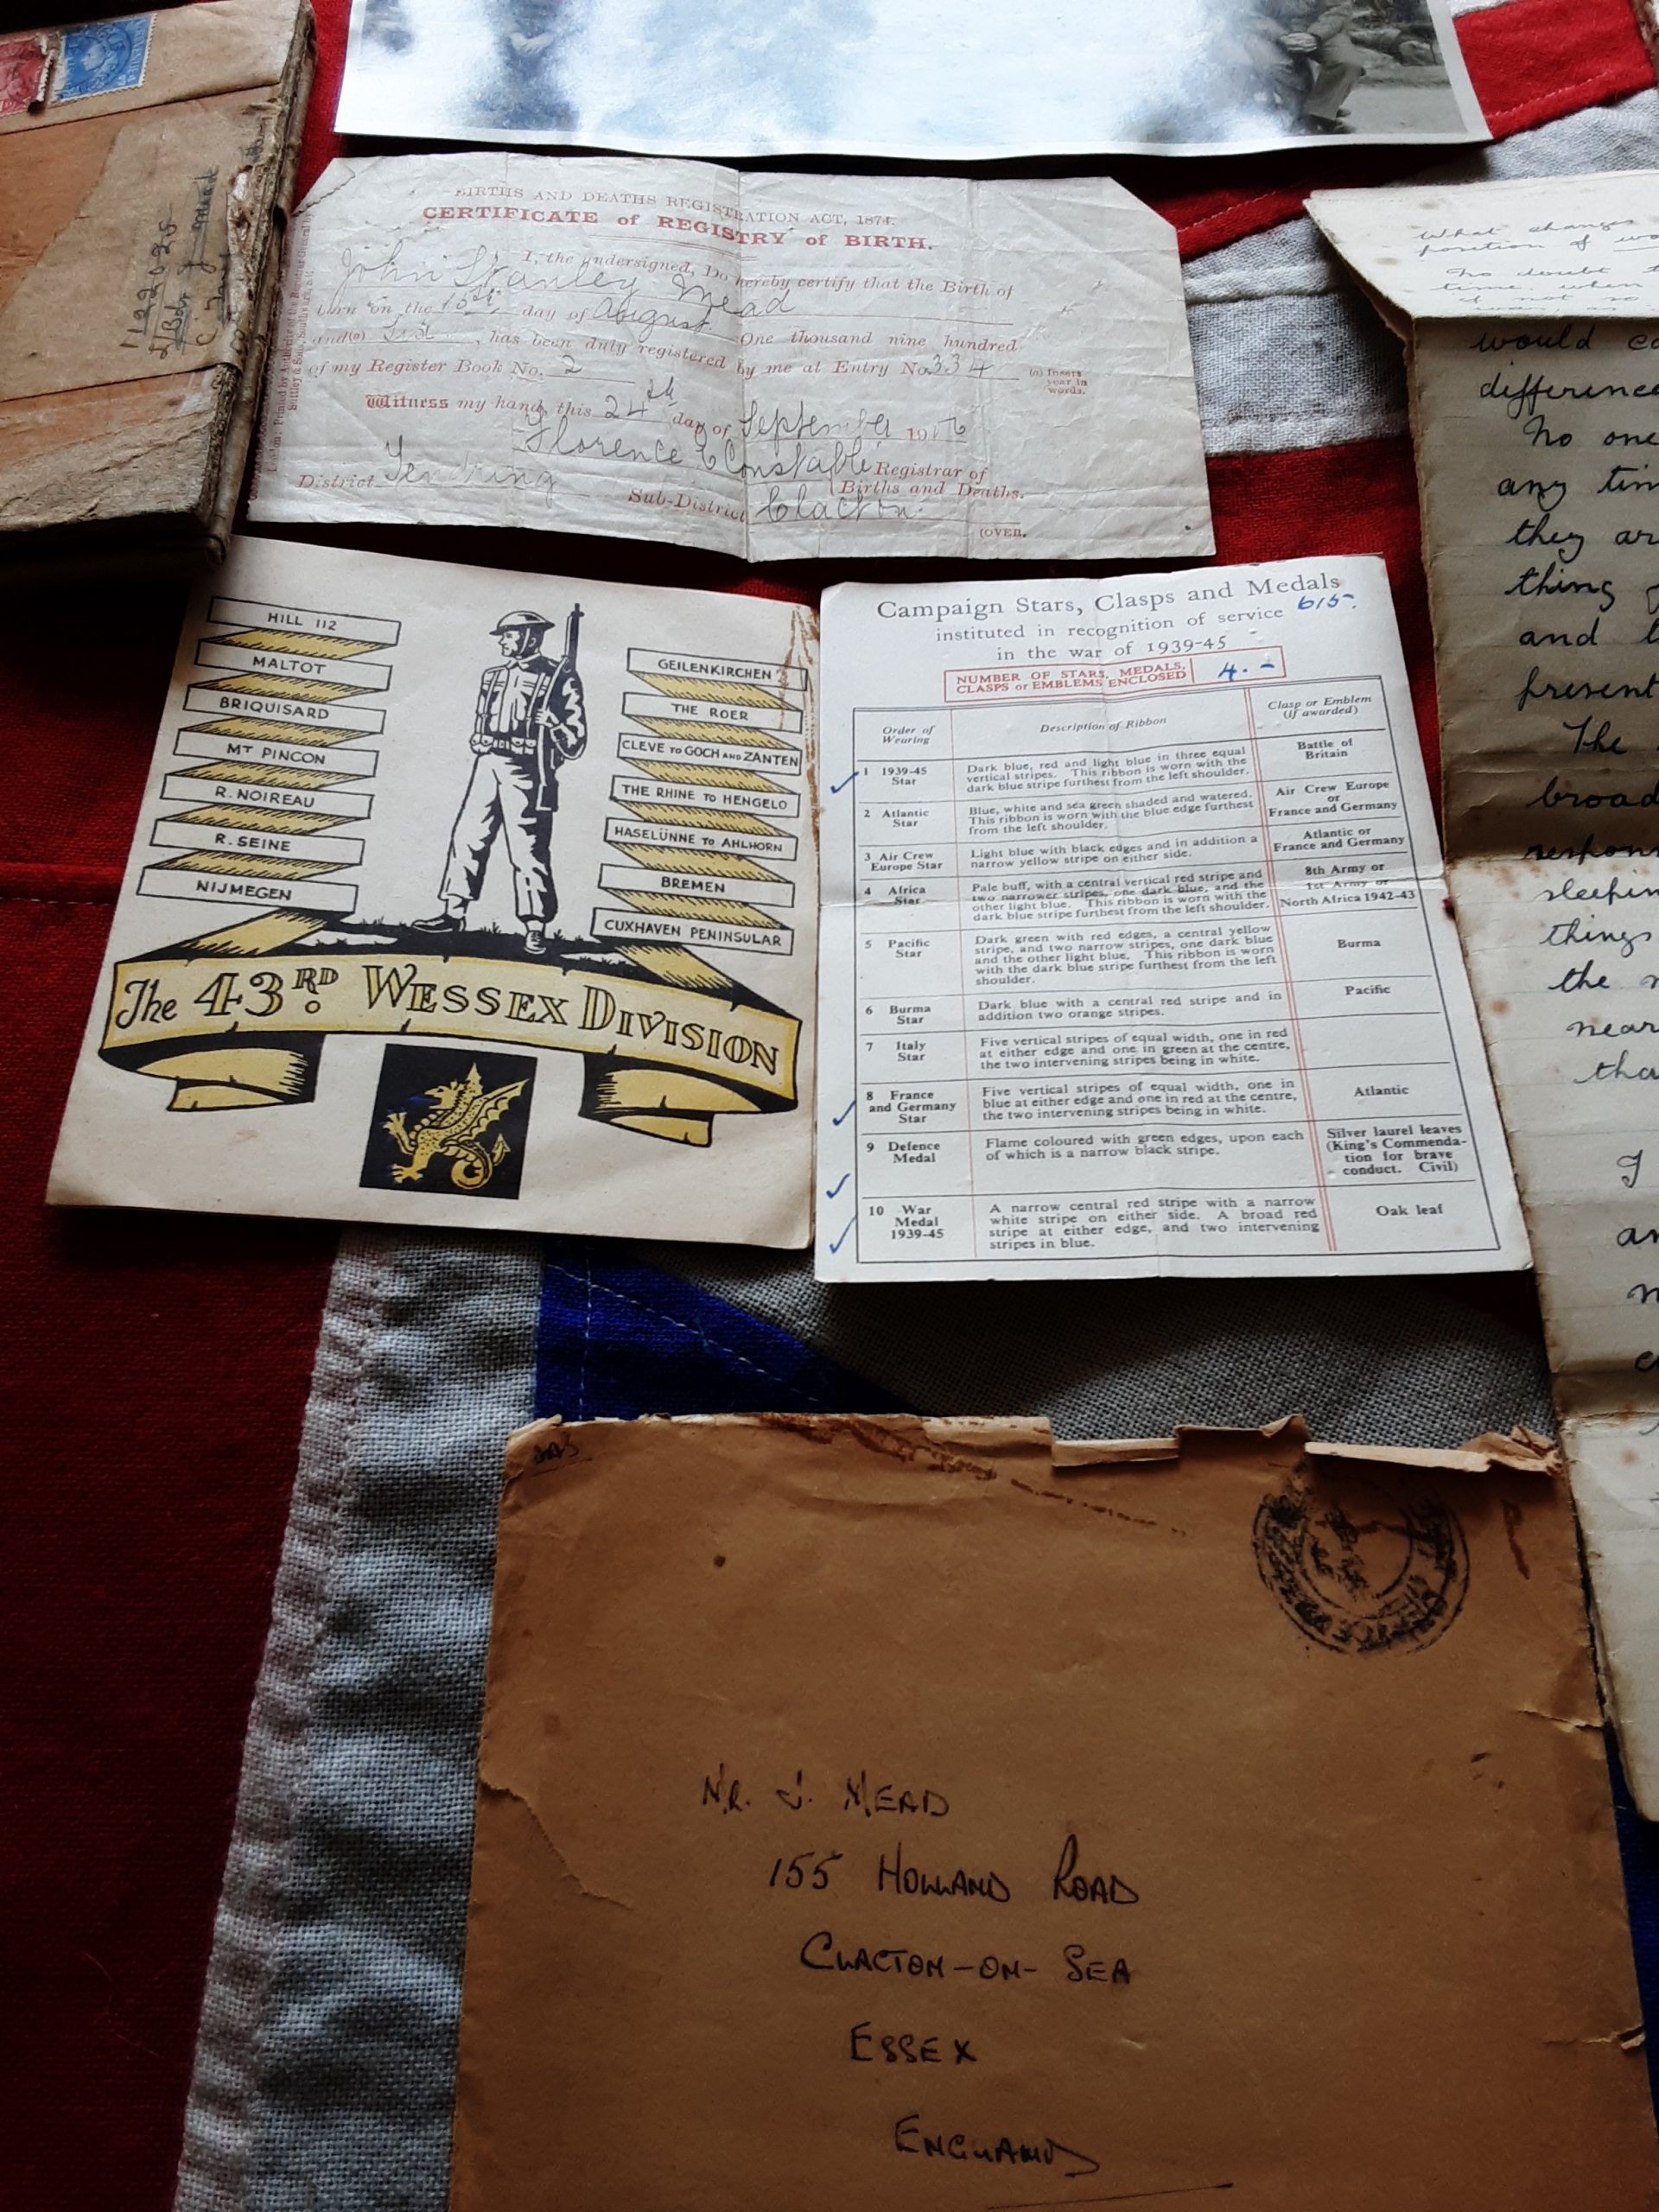 11220925
L/Bdr J Mead
BIRTHS AND DEATHS REGISTRATION ACT, 1874.
CERTIFICATE of REGISTRY of BIRTH.
I, the undersigned, Do hereby certify that the Birth of
John Stanley Mead
born on the day of August One thousand nine hundred
and(a) , has been duly registered by me at Entry No. 334
of my Register Book No. 2
(a) Insert
year in
words.
Witness my hand, this 24th day of September 19
Florence E Constable Registrar of
Births and Deaths.
District Tendring Sub-District Clacton
(OVER.
HILL 112
MALTOT
BRIQUISARD
MT PINCON
R. NOIREAU
R. SEINE
NIJMEGEN
GEILENKIRCHEN
THE ROER
CLEVE TO GOCH AND ZANTEN
THE RHINE TO HENGELO
HASELÜNNE TO AHLHORN
BREMEN
CUXHAVEN PENINSULAR
The 43RD WESSEX DIVISION
Campaign Stars, Clasps and Medals
instituted in recognition of service 615.
in the war of 1939-45
NUMBER OF STARS, MEDALS,
CLASPS or EMBLEMS ENCLOSED 4. -
Order of
Wearing
Description of Ribbon
Clasp or Emblem
(if awarded)
1 1939-45
Star
Dark blue, red and light blue in three equal
vertical stripes. This ribbon is worn with the
dark blue stripe furthest from the left shoulder.
Battle of
Britain
2 Atlantic
Star
Blue, white and sea green shaded and watered.
This ribbon is worn with the blue edge furthest
from the left shoulder.
Air Crew Europe
or
France and Germany
3 Air Crew
Europe Star
Light blue with black edges and in addition a
narrow yellow stripe on either side.
Atlantic or
France and Germany
4 Africa
Star
Pale buff, with a central vertical red stripe and
two narrower stripes, one dark blue, and the
other light blue. This ribbon is worn with the
dark blue stripe furthest from the left shoulder.
8th Army or
1st Army or
North Africa 1942-43
5 Pacific
Star
Dark green with red edges, a central yellow
stripe, and two narrow stripes, one dark blue
and the other light blue. This ribbon is worn
with the dark blue stripe furthest from the left
shoulder.
Burma
6 Burma
Star
Dark blue with a central red stripe and in
addition two orange stripes.
Pacific
7 Italy
Star
Five vertical stripes of equal width, one in red
at either edge and one in green at the centre,
the two intervening stripes being in white.
8 France
and Germany
Star
Five vertical stripes of equal width, one in
blue at either edge and one in red at the centre,
the two intervening stripes being in white.
Atlantic
9 Defence
Medal
Flame coloured with green edges, upon each
of which is a narrow black stripe.
Silver laurel leaves
(King's Commenda-
tion for brave
conduct. Civil)
10 War
Medal
1939-45
A narrow central red stripe with a narrow
white stripe on either side. A broad red
stripe at either edge, and two intervening
stripes in blue.
Oak leaf
What changes
position of
No doubt
time, when
if not so
would
difference
No one
any tim
they ar
thing
and
present
The
broad
respon
sleepin
things
the
near
tha
I
an
MR. J. MEAD
155 HOLLAND ROAD
CLACTON-ON-SEA
ESSEX
ENGLAND